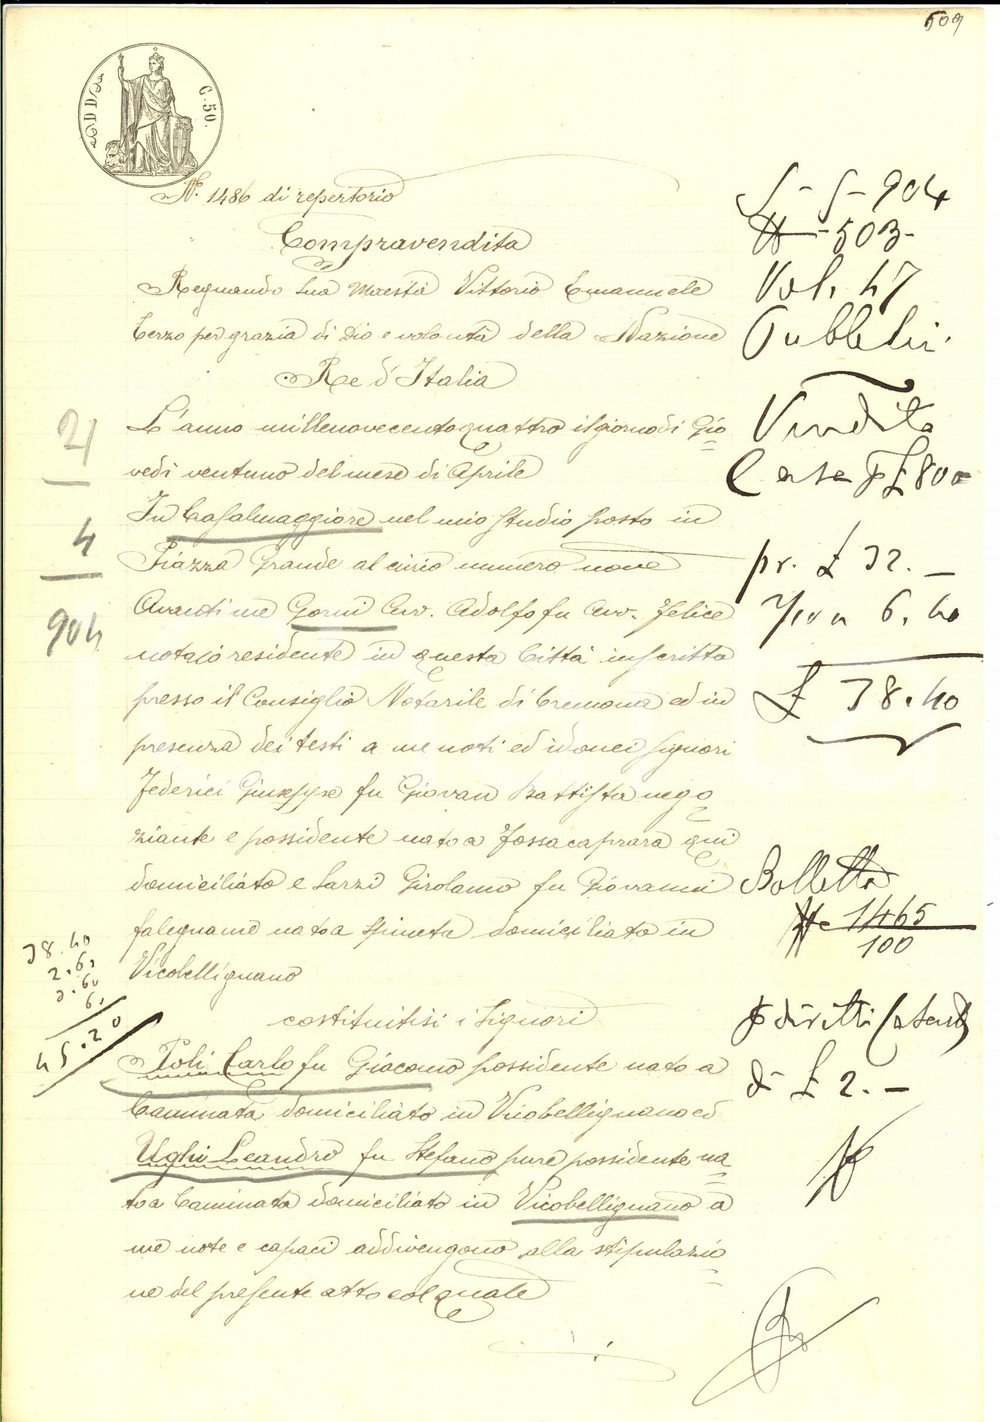 509
C. 50.
N. 1486 di repertorio
Compravendita
Regnando Sua Maestà Vittorio Emanuele
terzo per grazia di Dio e volontà della Nazione
Re d'Italia
L'anno millenovecentoquattro il giorno di Gio
vedì ventuno del mese di Aprile
In Casalmaggiore nel mio studio posto in
Piazza Grande al civico numero nove
Avanti me Gorni Avv. Adolfo fu Avv. Felice
notajo residente in questa Città inscritto
presso il Consiglio Notarile di Cremona ed in
presenza dei testi a me noti ed idonei signori
Federici Giuseppe fu Giovan Battista nego
ziante e possidente nato a Fossacaprara qui
domiciliato e Sarzi Girolamo fu Giovanni
falegname nato a Spineta domiciliato in
Vicobellignano
costituitisi i Signori
Poli Carlo fu Giacomo possidente nato a
Caminata domiciliato in Vicobellignano ed
Ughi Leandro fu Stefano pure possidente na
to a Caminata domiciliato in Vicobellignano a
me note e capaci addivengono alla stipulazio
ne del presente atto col quale
5 - 5 - 904
N - 503 -
Vol. 47
Pubblici
Vendita
Case p £ 800
pr. £ 32. -
6. 40
£ 38. 40
Bolletta
N° 1465
100
p diritti Catast
di £ 2. -
21
4
904
38. 40
45. 20